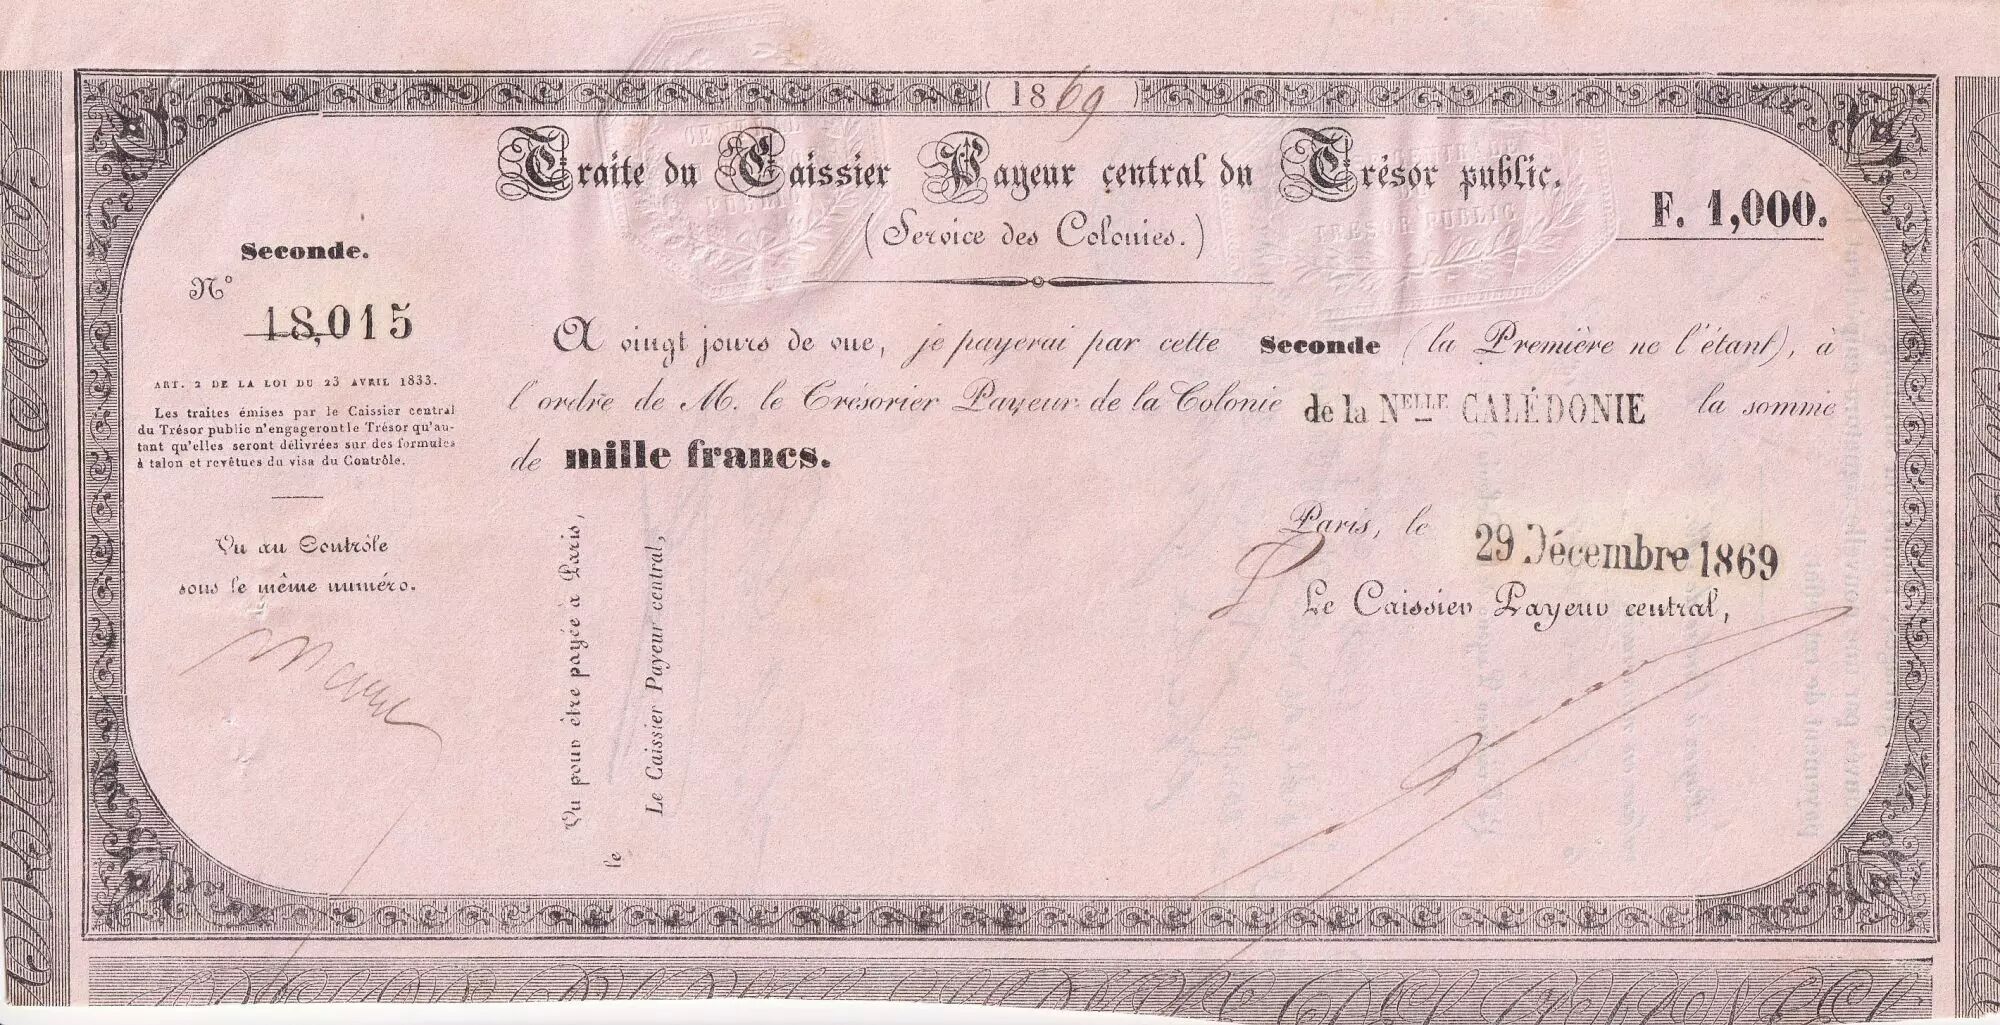 ( 1869 )
Traite du Caissier Payeur central du Trésor public.
(Service des Colonies.)
F. 1,000.
Seconde.
N°
18,015
ART. 2 DE LA LOI DU 23 AVRIL 1833.
Les traites émises par le Caissier central
du Trésor public n'engageront le Trésor qu'au-
tant qu'elles seront délivrées sur des formules
à talon et revêtues du visa du Contrôle.
Vu au Contrôle
sous le même numéro.
A vingt jours de vue, je payerai par cette Seconde (la Première ne l'étant), à
l'ordre de M. le Trésorier Payeur de la Colonie de la NELLE CALÉDONIE la somme
de mille francs.
Vu pour être payée à Paris,
le
Le Caissier Payeur central,
Paris, le 29 Décembre 1869
Le Caissier Payeur central,
PUBLIC
TRESOR PUBLIC